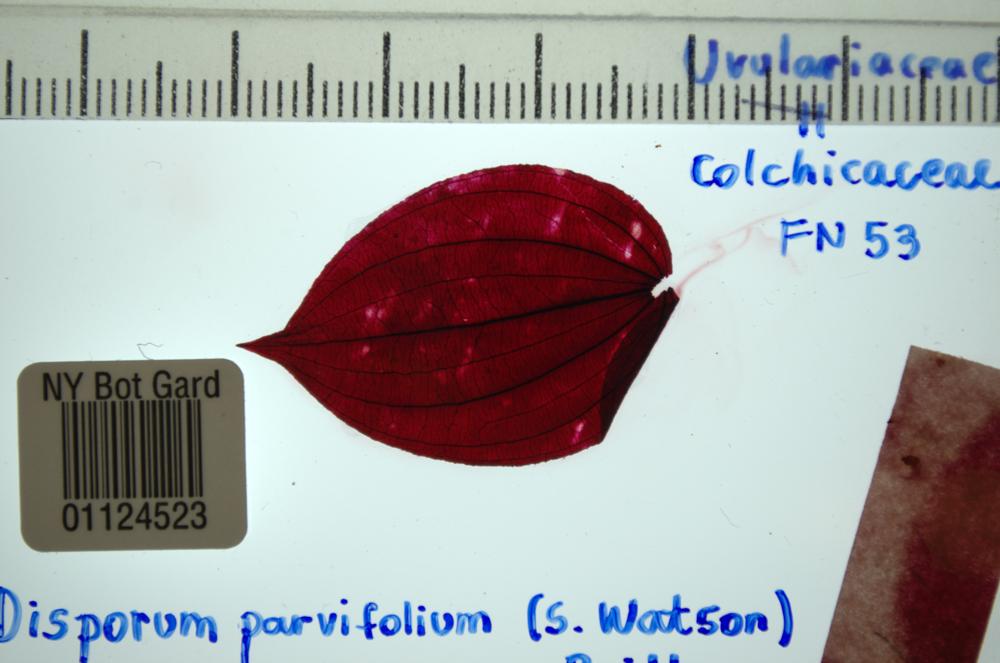 Uvulariaceae
Colchicaceae
FN 53
NY Bot Gard
01124523
Disporum parvifolium (S. Watson)